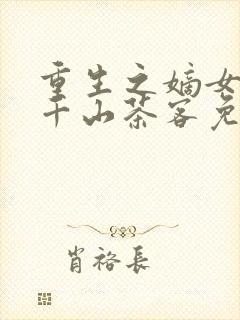 重生之嫡女
千山茶客免
肖裕长